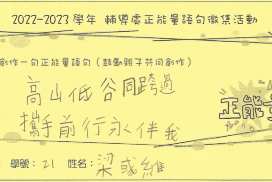 2022-2023 學年 輔導處正能量語句徵集活動
創作一句正能量語句（鼓勵親子共同創作）
高山低谷同跨過
攜手前行永伴我
正能
學號：21 姓名：梁或維